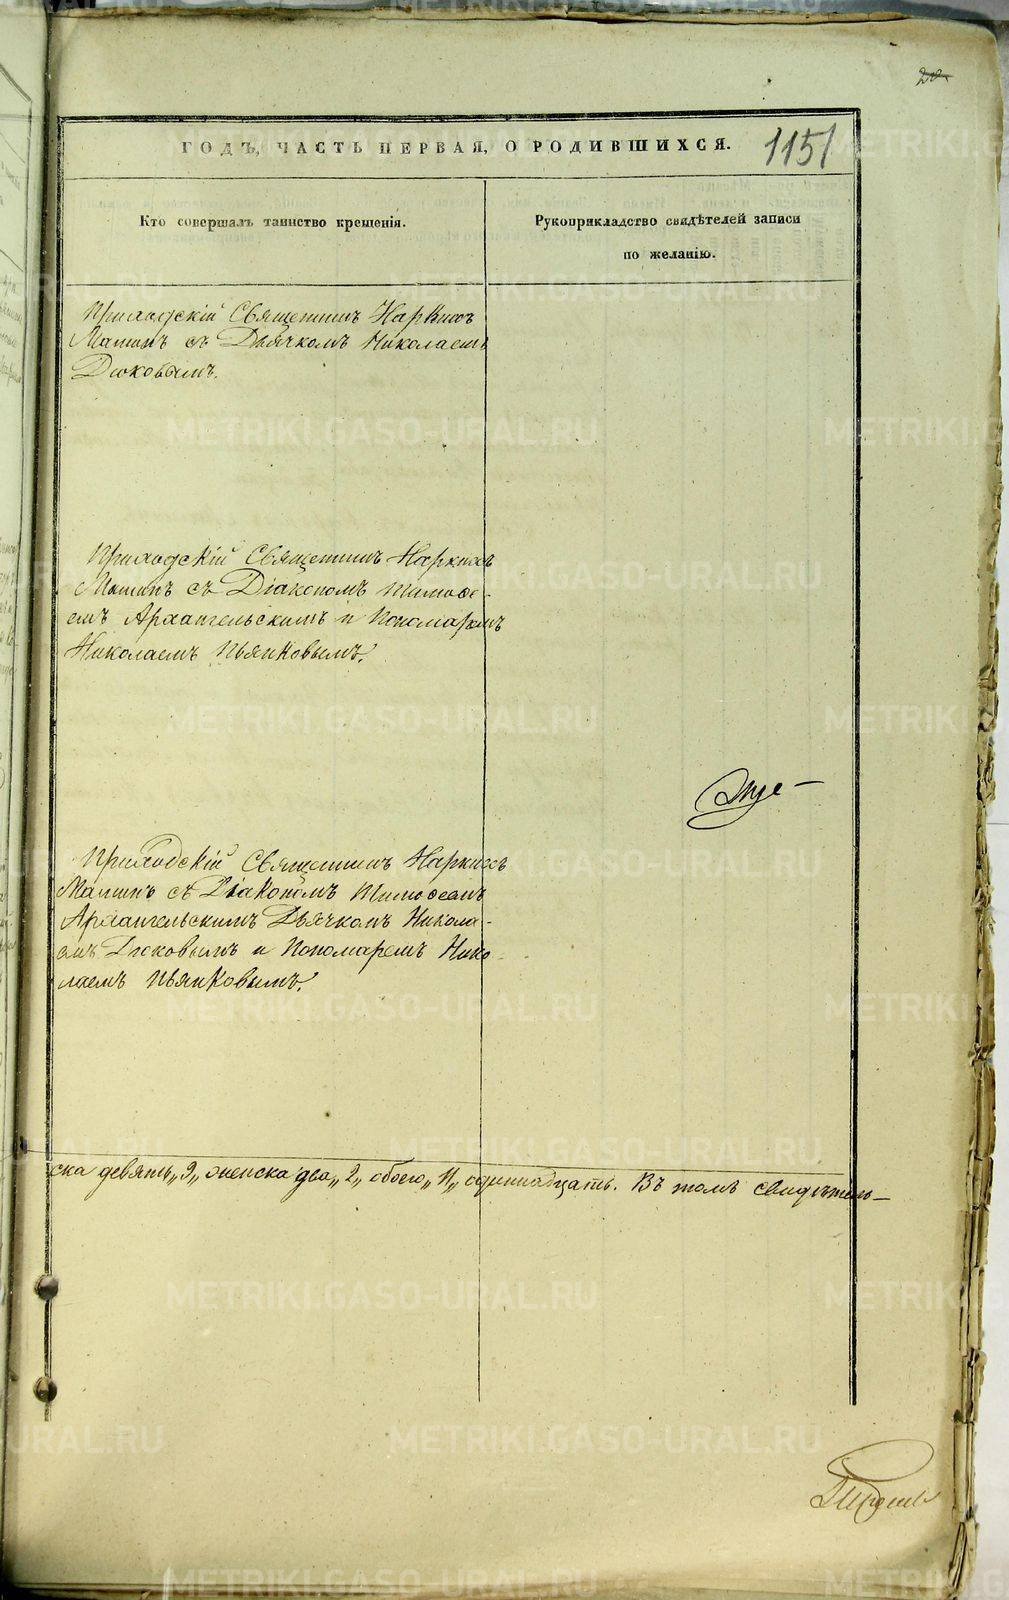 ГОДЪ, ЧАСТЬ ПЕРВАЯ, О РОДИВШИХСЯ.
1151
Кто совершалъ таинство крещенія.
Рукоприкладство свидѣтелей записи
по желанію.
Приходскій Священникъ Наркиссъ
Мамінъ съ Дьячкомъ Николаемъ
Дюковымъ.
Приходскій Священникъ Наркиссъ
Маминъ съ Діакономъ Тимоѳе-
емъ Архангельскимъ и Пономаремъ
Николаемъ Пьянковымъ.
Приходскій Священникъ Наркиссъ
Маминъ съ Діакономъ Тимоѳеемъ
Архангельскимъ Дьячкомъ Никола-
емъ Дюковымъ и Пономаремъ Нико-
лаемъ Пьянковымъ.
ска девять„9„ женска два„2„ обоего„11„одиннадцать. Въ томъ свидѣтель-
METRIKI.GASO-URAL.RU